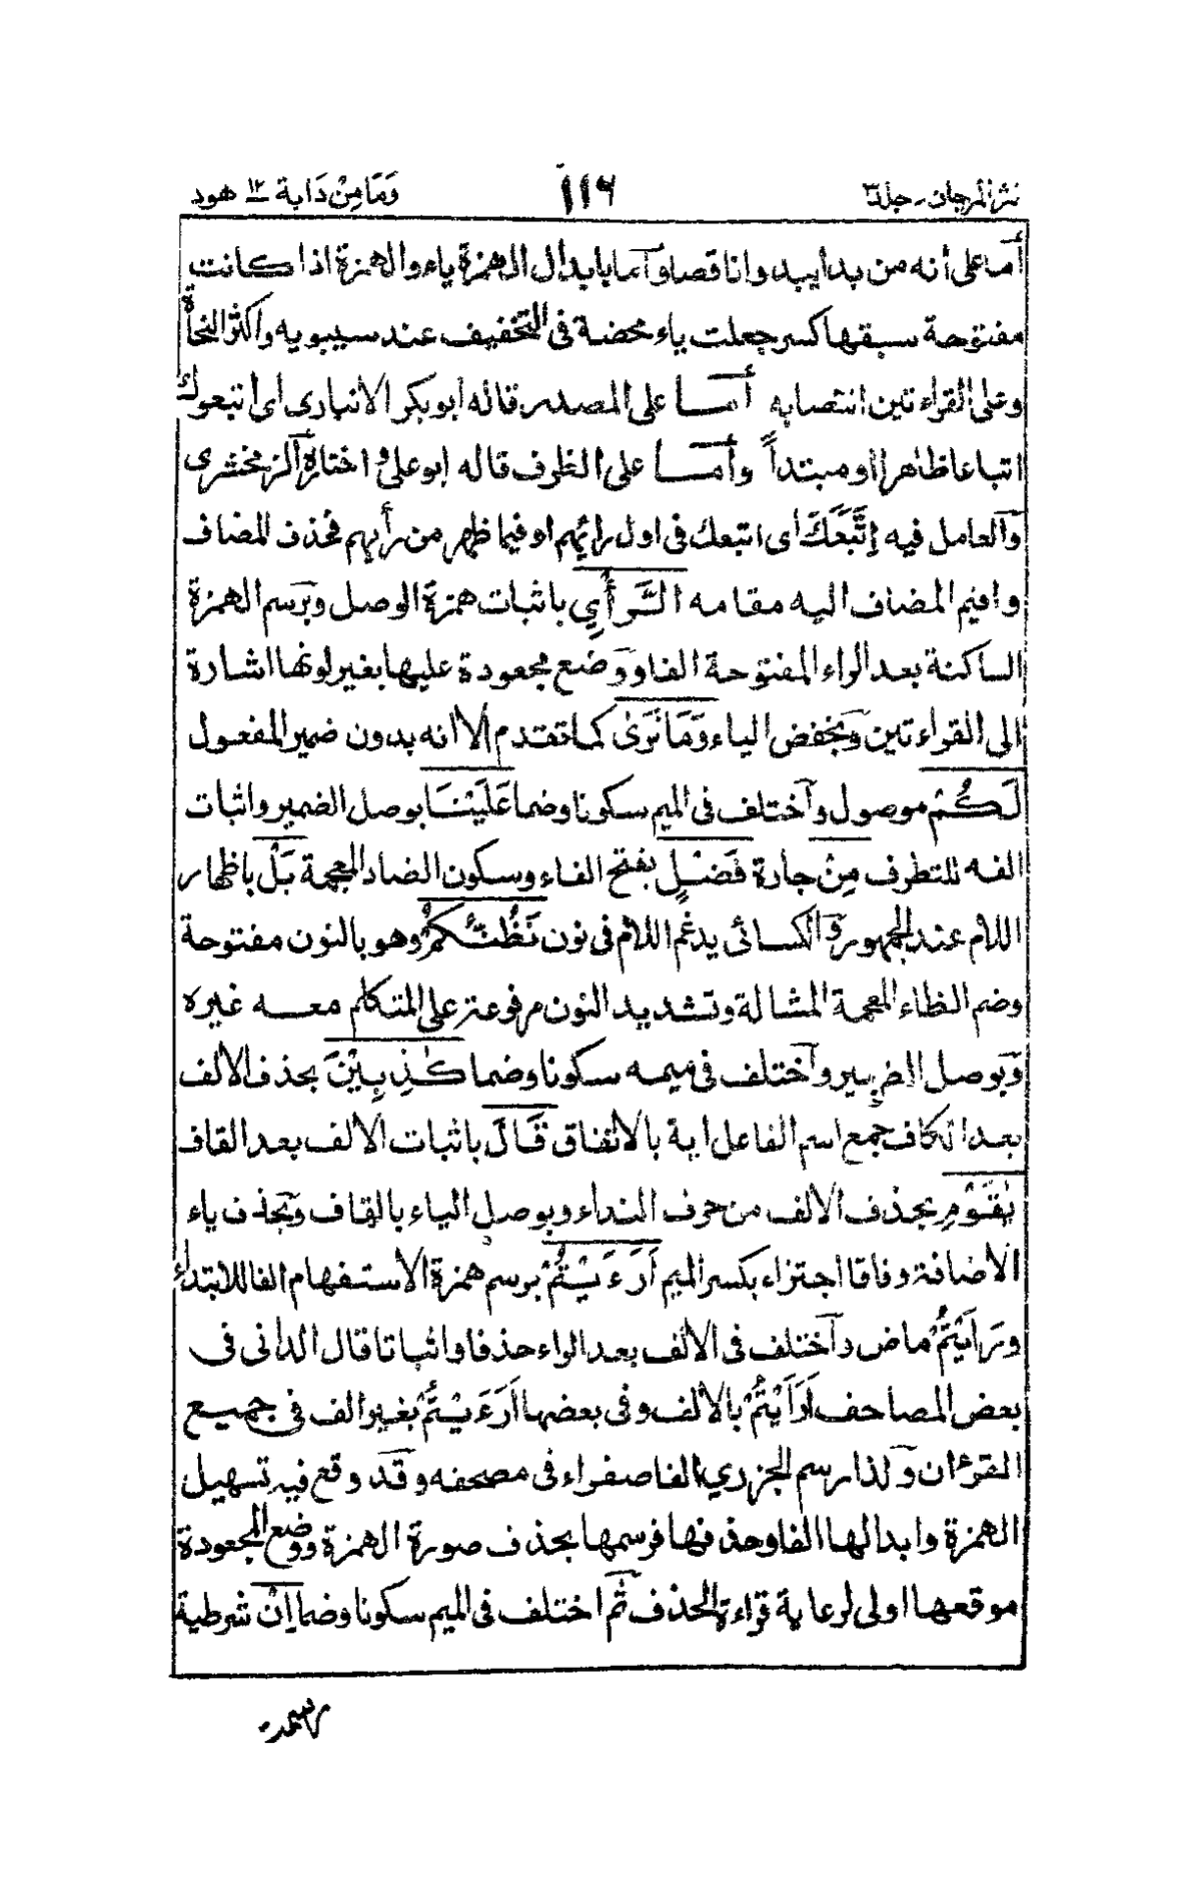 نثر المرجان - جلد ٣ ١١٦ وَمَا مِنْ دَابة ١٢ هود
أما على أنه من بدا يبدو انا قصا وآما بابدال الهمزة ياء والهمزة اذا كانت
مفتوحة سبقها كسر جعلت ياء محضة فى التخفيف عند سيبويه واكثر النحاة
وعلى القراءتين انتصابه أما على المصدر قاله ابوبكر الانبارى اى اتبعوك
اتباعا ظاهرا او مبتدأً وأما على الظرف قاله ابو على واختاره الزمخشرى
والعامل فيه اِتَّبَعَكَ اى اتبعك فى اول رائهم او فيما ظهر من رأيهم فحذف المضاف
واقيم المضاف اليه مقامه الرَّأْيِ باثبات همزة الوصل وبرسم الهمزة
الساكنة بعد الراء المفتوحة الفا ووضع مجعودة عليها بغير لونها اشارة
الى القراءتين وبخفض الياء وَمَا نَرٰى كما تقدم الا انه بدون ضمير المفعول
لَكُمْ موصول واختلف فى الميم سكونا وضما عَلَيْنَا بوصل الضمير واثبات
الفه للتطرف مِنْ جارة فَضْلٍ بفتح الفاء وسكون الضاد المعجمة بَلْ باظهار
اللام عند الجمهور والكسائى يدغم اللام فى نون نَظُنُّكُمْ وهو بالنون مفتوحة
وضم الظاء المعجمة المشالة وتشديد النون مرفوعة على المتكلم معه غيره
وبوصل الضمير واختلف فى ميمه سكونا وضما كٰذِبِيْنَ بحذف الالف
بعد الكاف جمع اسم الفاعل اية بالاتفاق قَالَ باثبات الالف بعد القاف
يٰقَوْمِ بحذف الالف من حرف النداء وبوصل الياء بالقاف وبحذف ياء
الاضافة وفاقا اجتزاء بكسر الميم اَرَءَيْتُمْ برسم همزة الاستفهام الفا للابتداء
ورَاَيْتُمْ ماض واختلف فى الالف بعد الراء حذفا واثباتا قال الدانى فى
بعض المصاحف اَرَاَيْتُمْ بالالف وفى بعضها اَرَءَيْتُمْ بغير الف فى جميع
القرءان وكذا رسم الجزري الفا صفراء فى مصحفه وقد وقع فيه تسهيل
الهمزة وابدالها الفا وحذفها فرسمها بحذف صورة الهمزة ووضع المجعودة
موقعها اولى لرعاية قراءة الحذف ثم اختلف فى الميم سكونا وضما اِنْ شرطية